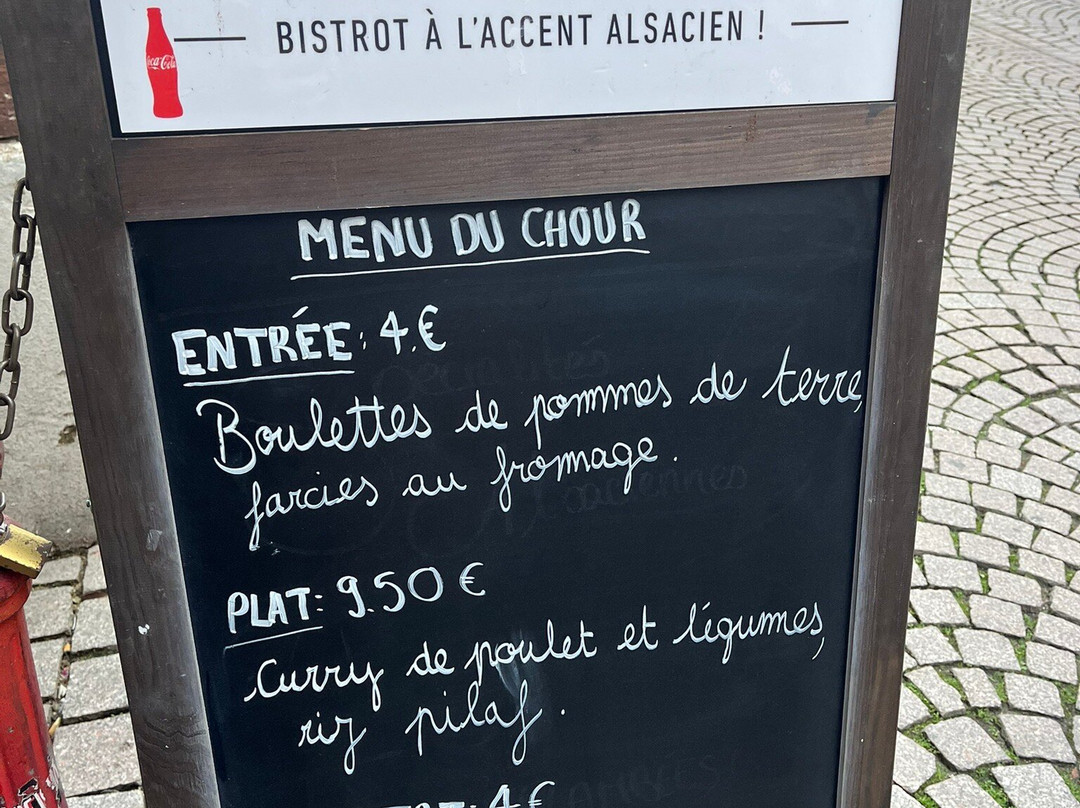 Coca-Cola
BISTROT À L'ACCENT ALSACIEN !
MENU DU CHOUR
ENTRÉE: 4.€
Boulettes de pommes de terre,
farcies au fromage.
PLAT: 9.50 €
Curry de poulet et légumes,
riz pilaf.
4 €